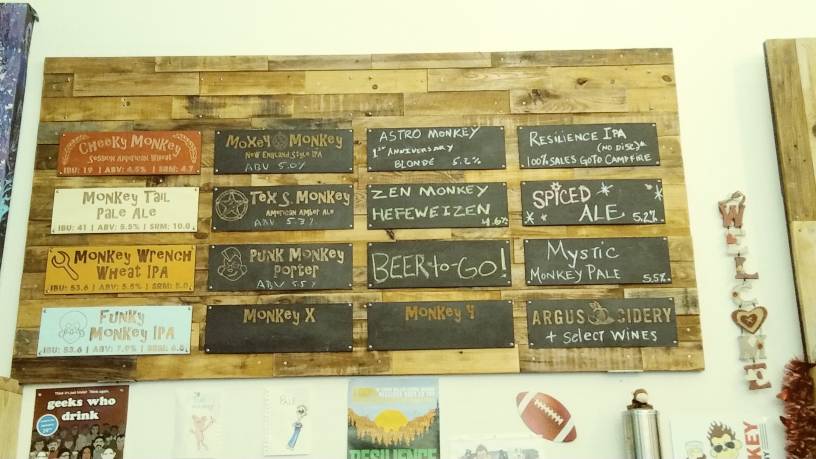 Cheeky Monkey
Session American Wheat
IBU: 19 | ABV: 4.5% | SRM: 4.7
Monkey Tail
Pale Ale
IBU: 41 | ABV: 5.5% | SRM: 10.0
Monkey Wrench
Wheat IPA
IBU: 53.6 | ABV: 5.5% | SRM: 5.0
Funky
Monkey IPA
IBU: 53.6 | ABV: 7.9% | SRM: 6.0
Moxey Monkey
New England Style IPA
ABV 5.0%
Tex S. Monkey
American Amber Ale
ABV 5.3%
Punk Monkey
Porter
ABV 5.5%
Monkey X
ASTRO MONKEY
1st ANNIVERSARY
BLONDE 5.2%
ZEN MONKEY
HEFEWEIZEN 4.6%
BEER-to-GO!
Monkey Y
RESILIENCE IPA
(NO DISC)*
100% SALES GO TO CAMPFIRE
SPICED
ALE 5.2%
MYSTIC
MONKEY PALE 5.5%
ARGUS CIDERY
+ SELECT WINES
WELCOME
Think it's just trivia? Think again.
geeks who
drink
RESILIENCE
KEY